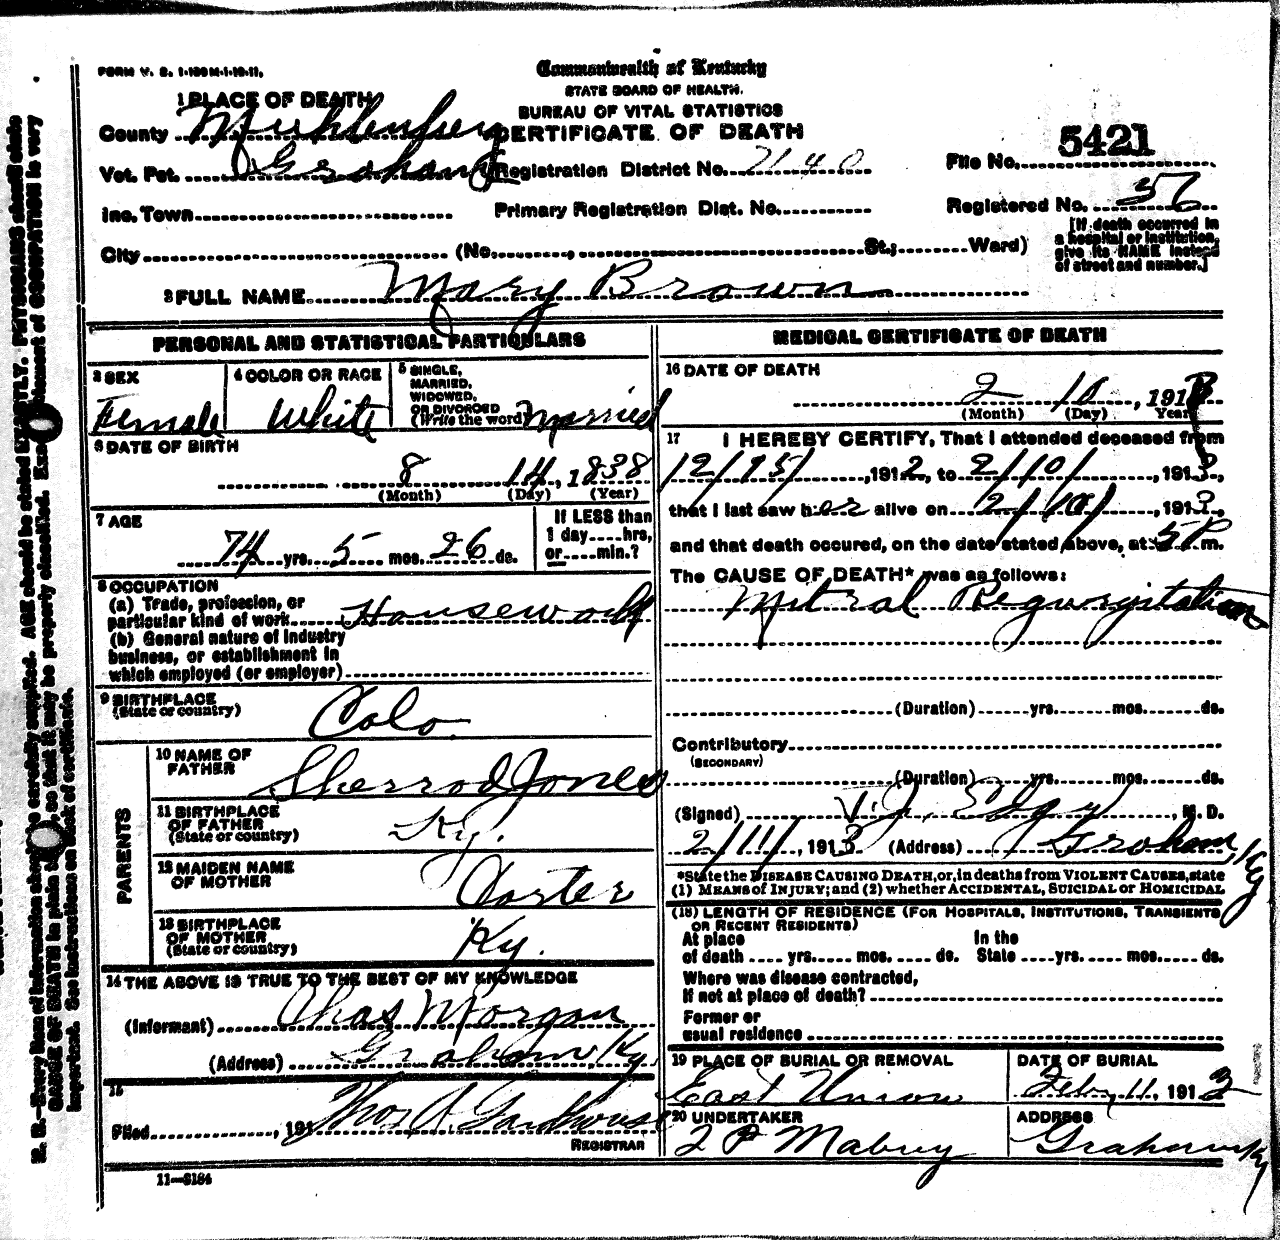 FORM V. S. 1-130M-1-10-11.
Commonwealth of Kentucky
STATE BOARD OF HEALTH.
BUREAU OF VITAL STATISTICS
CERTIFICATE OF DEATH
1 PLACE OF DEATH
County Muhlenberg
Vot. Pct. Graham
Registration District No. 7140
File No. 5421
Inc. Town
Primary Registration Dist. No.
Registered No. 36
City (No. , St.; Ward)
[If death occurred in
a hospital or institution,
give its NAME instead
of street and number.]
2 FULL NAME Mary Brown
PERSONAL AND STATISTICAL PARTICULARS
3 SEX
Female
4 COLOR OR RACE
White
5 SINGLE,
MARRIED,
WIDOWED,
OR DIVORCED
(Write the word) Married
6 DATE OF BIRTH
8 14, 1838
(Month) (Day) (Year)
7 AGE
74 yrs. 5 mos. 26 ds.
If LESS than
1 day....hrs,
or....min.?
8 OCCUPATION
(a) Trade, profession, or
particular kind of work Housework
(b) General nature of industry
business, or establishment in
which employed (or employer)
9 BIRTHPLACE
(State or country)
Colo.
PARENTS
10 NAME OF
FATHER
Sherrod Jones
11 BIRTHPLACE
OF FATHER
(State or country)
Ky.
12 MAIDEN NAME
OF MOTHER
13 BIRTHPLACE
OF MOTHER
(State or country)
Ky.
14 THE ABOVE IS TRUE TO THE BEST OF MY KNOWLEDGE
(Informant) Chas Morgan
(Address) Graham Ky.
15
Filed , 191 Thos
REGISTRAR
11-3184
MEDICAL CERTIFICATE OF DEATH
16 DATE OF DEATH
2 10, 1913
(Month) (Day) Year
17 I HEREBY CERTIFY, That I attended deceased from
12/15/, 1912, to 2/10/, 1913,
that I last saw her alive on 2/10/, 1913,
and that death occured, on the date stated above, at 5P m.
The CAUSE OF DEATH* was as follows:
Mitral Regurgitation
(Duration) yrs. mos. ds.
Contributory
(SECONDARY)
(Duration) yrs. mos. ds.
(Signed) V. J. , M. D.
2/11/, 1913 (Address) Graham, Ky
*State the DISEASE CAUSING DEATH, or, in deaths from VIOLENT CAUSES, state
(1) MEANS OF INJURY; and (2) whether ACCIDENTAL, SUICIDAL or HOMICIDAL
(18) LENGTH OF RESIDENCE (FOR HOSPITALS, INSTITUTIONS, TRANSIENTS
OR RECENT RESIDENTS)
At place In the
of death .... yrs..... mos..... ds. State ....yrs..... mos..... ds.
Where was disease contracted,
If not at place of death?
Former or
usual residence
19 PLACE OF BURIAL OR REMOVAL
East Union
DATE OF BURIAL
Feb. 11, 1913
20 UNDERTAKER
ADDRESS
Graham Ky
N. B.—Every item of information should be carefully supplied. AGE should be stated EXACTLY. PHYSICIANS should state
CAUSE OF DEATH in plain terms, so that it may be properly classified. Exact statement of OCCUPATION is very
important. See instructions on back of certificate.